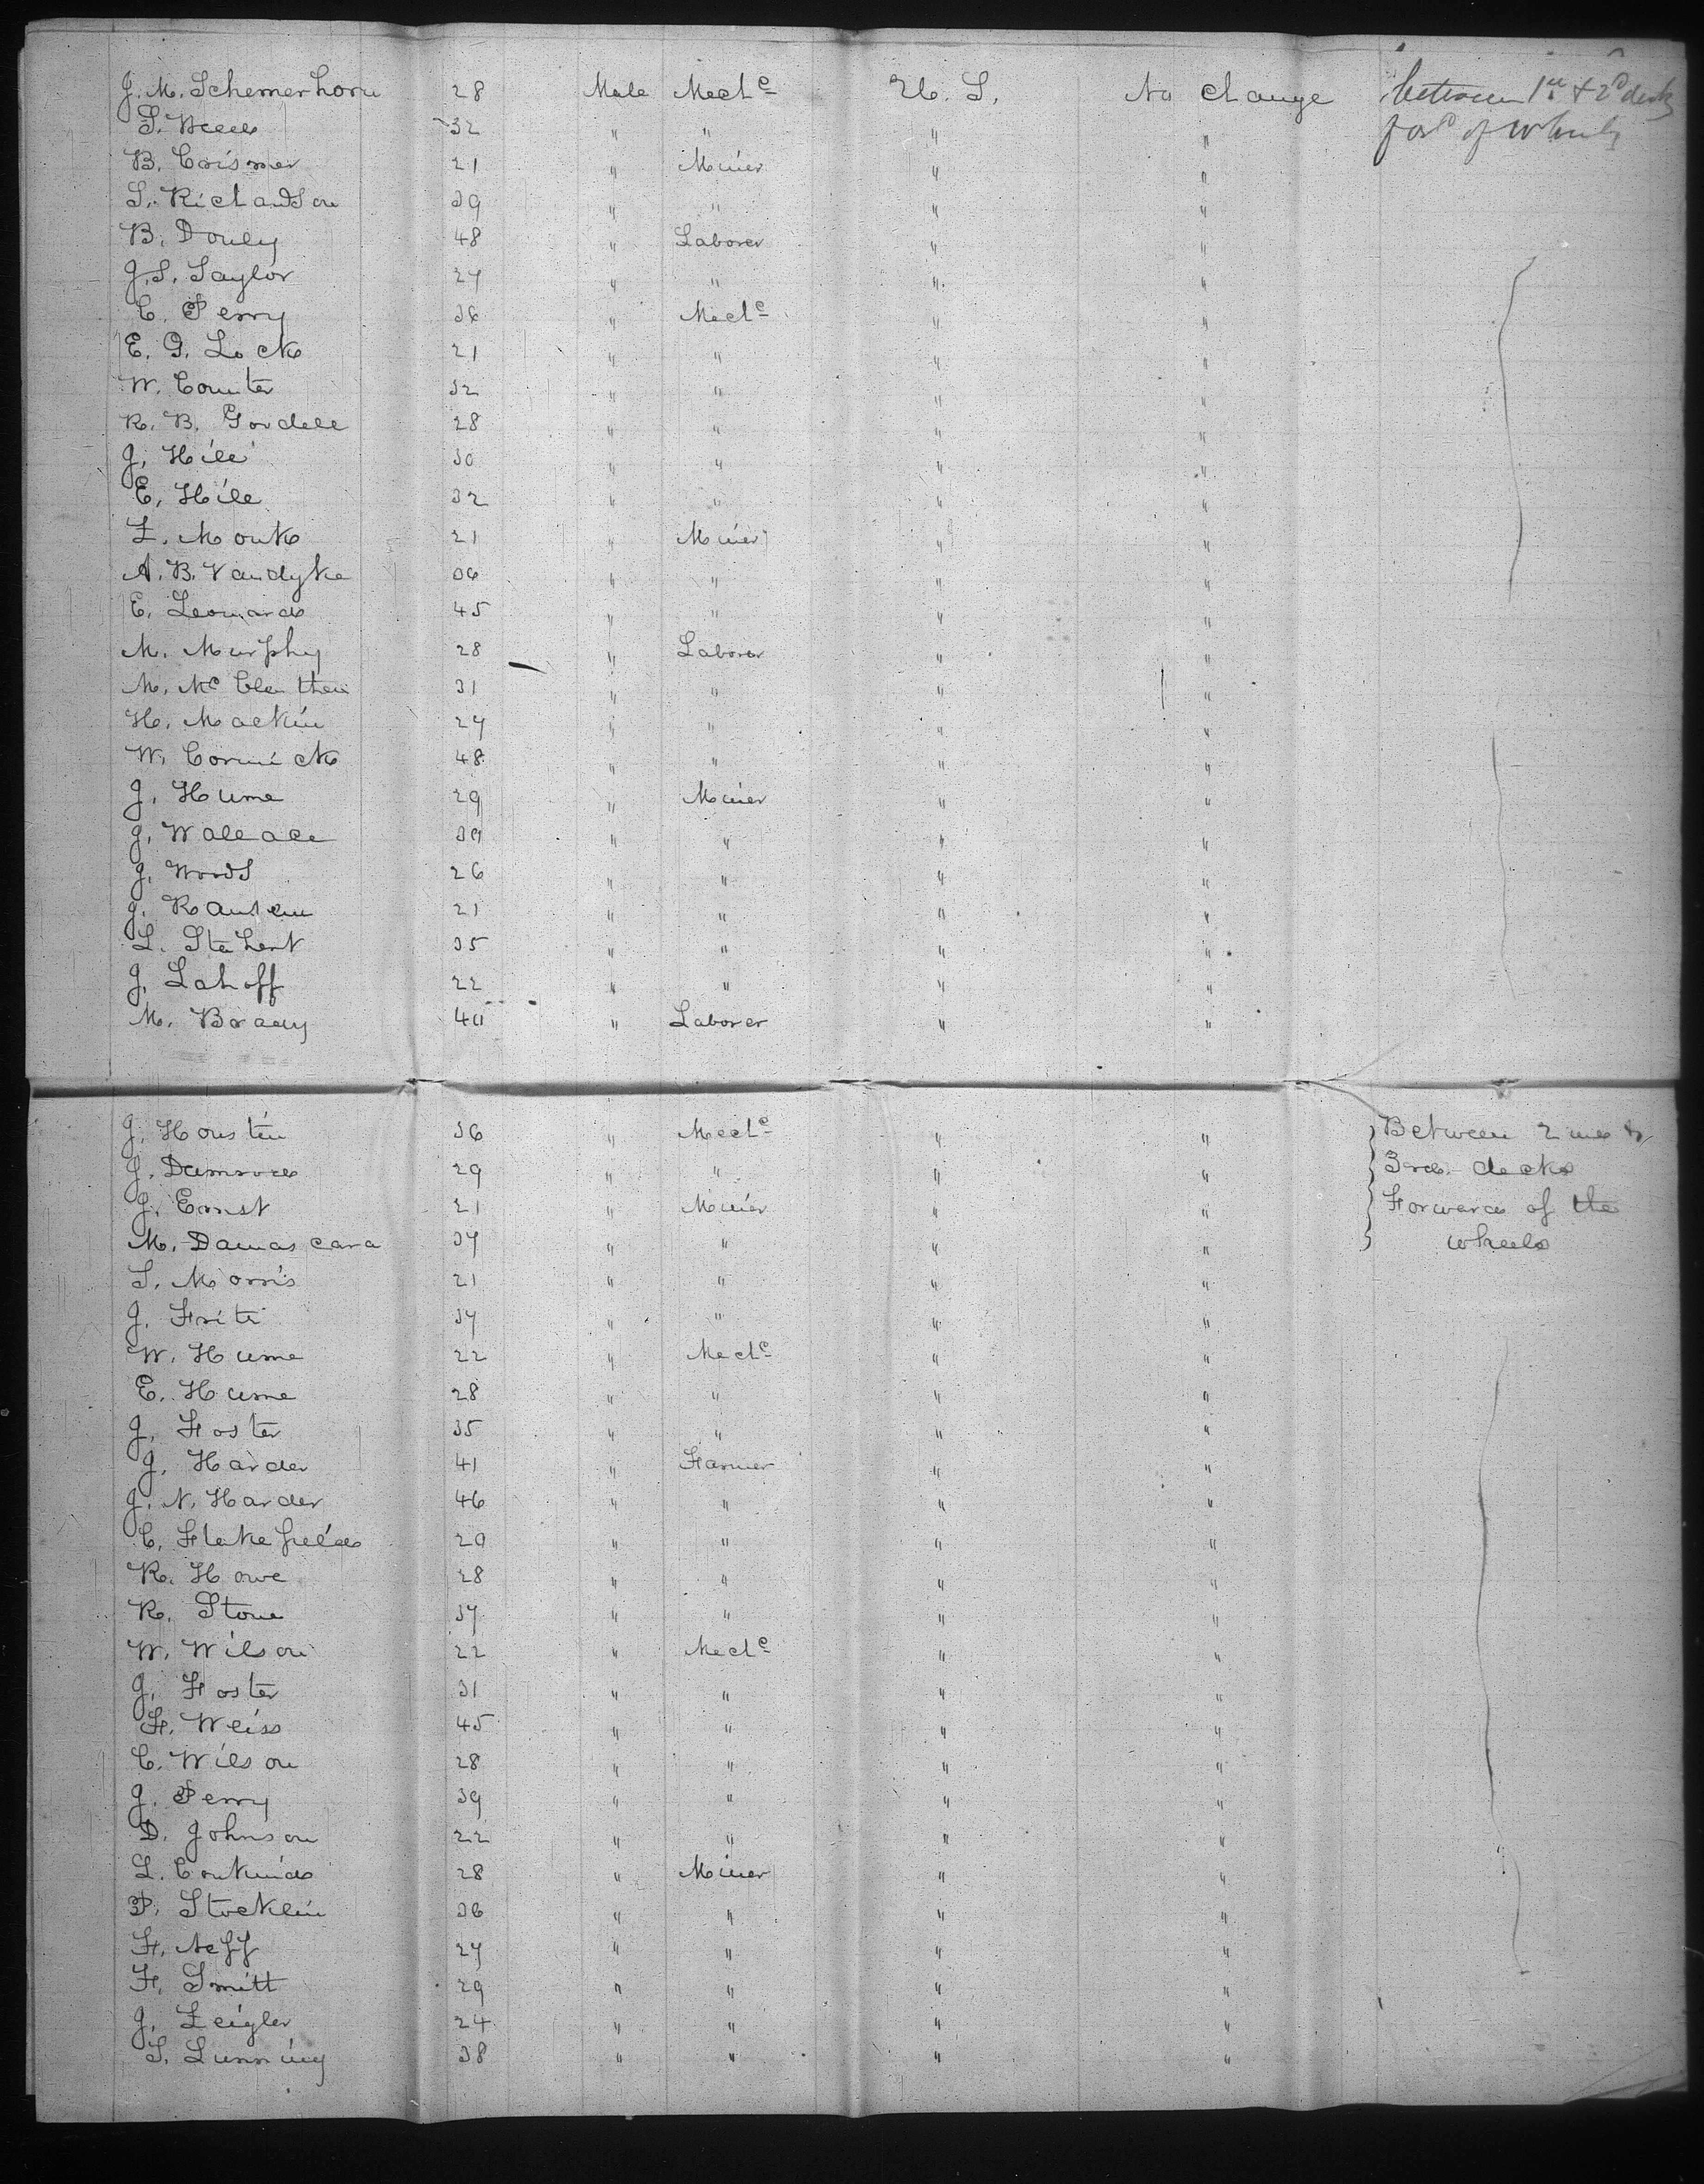 J. M. Schemerhorn 28 Male Mech.c U. S. No Change between 1st & 2d decks
S. Weeb 32 " " " " for'd of Wheels
B. Crismer 21 " Miner " "
S. Richardson 39 " " " "
B. Douly 48 " Laborer " "
J. S. Taylor 27 " " " "
C. Perry 36 " Mech.c " "
E. G. Lock 21 " " " "
W. Counter 32 " " " "
R. B. Gordell 28 " " " "
J. Hill 30 " " " "
E. Hill 32 " " " "
Z. Monk 21 " Miner " "
A. B. Vandyke 36 " " " "
E. Leonard 45 " " " "
M. Murphy 28 " Laborer " "
M. Mc 31 " " " "
H. Mackin 27 " " " "
W. Cormick 48 " " " "
J. Hume 29 " Miner " "
J. Wallace 39 " " " "
J. Woods 26 " " " "
J. 21 " " " "
L. 35 " " " "
J. Lahoff 22 " " " "
M. Brady 40 " Laborer " "
J. Houstin 36 " Mech.c " " Between 2nd &
J. 29 " " " " 3rd decks
J. Ernst 21 " Miner " " Forward of the
M. Damascara 37 " " " " wheels
S. Morris 21 " " " "
J. Frite 37 " " " "
W. Hume 22 " Mech.c " "
E. Hume 28 " " " "
J. Foster 35 " " " "
J. Harder 41 " Farmer " "
J. N. Harder 46 " " " "
C. Flakefield 29 " " " "
R. Howe 28 " " " "
R. Stone 37 " " " "
W. Wilson 22 " Mech.c " "
J. Foster 31 " " " "
F. Weiss 45 " " " "
C. Wilson 28 " " " "
J. Perry 39 " " " "
D. Johnson 22 " " " "
L. 28 " Miner " "
P. Stocklin 36 " " " "
F. Neff 27 " " " "
F. Smitt 29 " " " "
J. Zeigler 24 " " " "
S. Lunning 38 " " " "